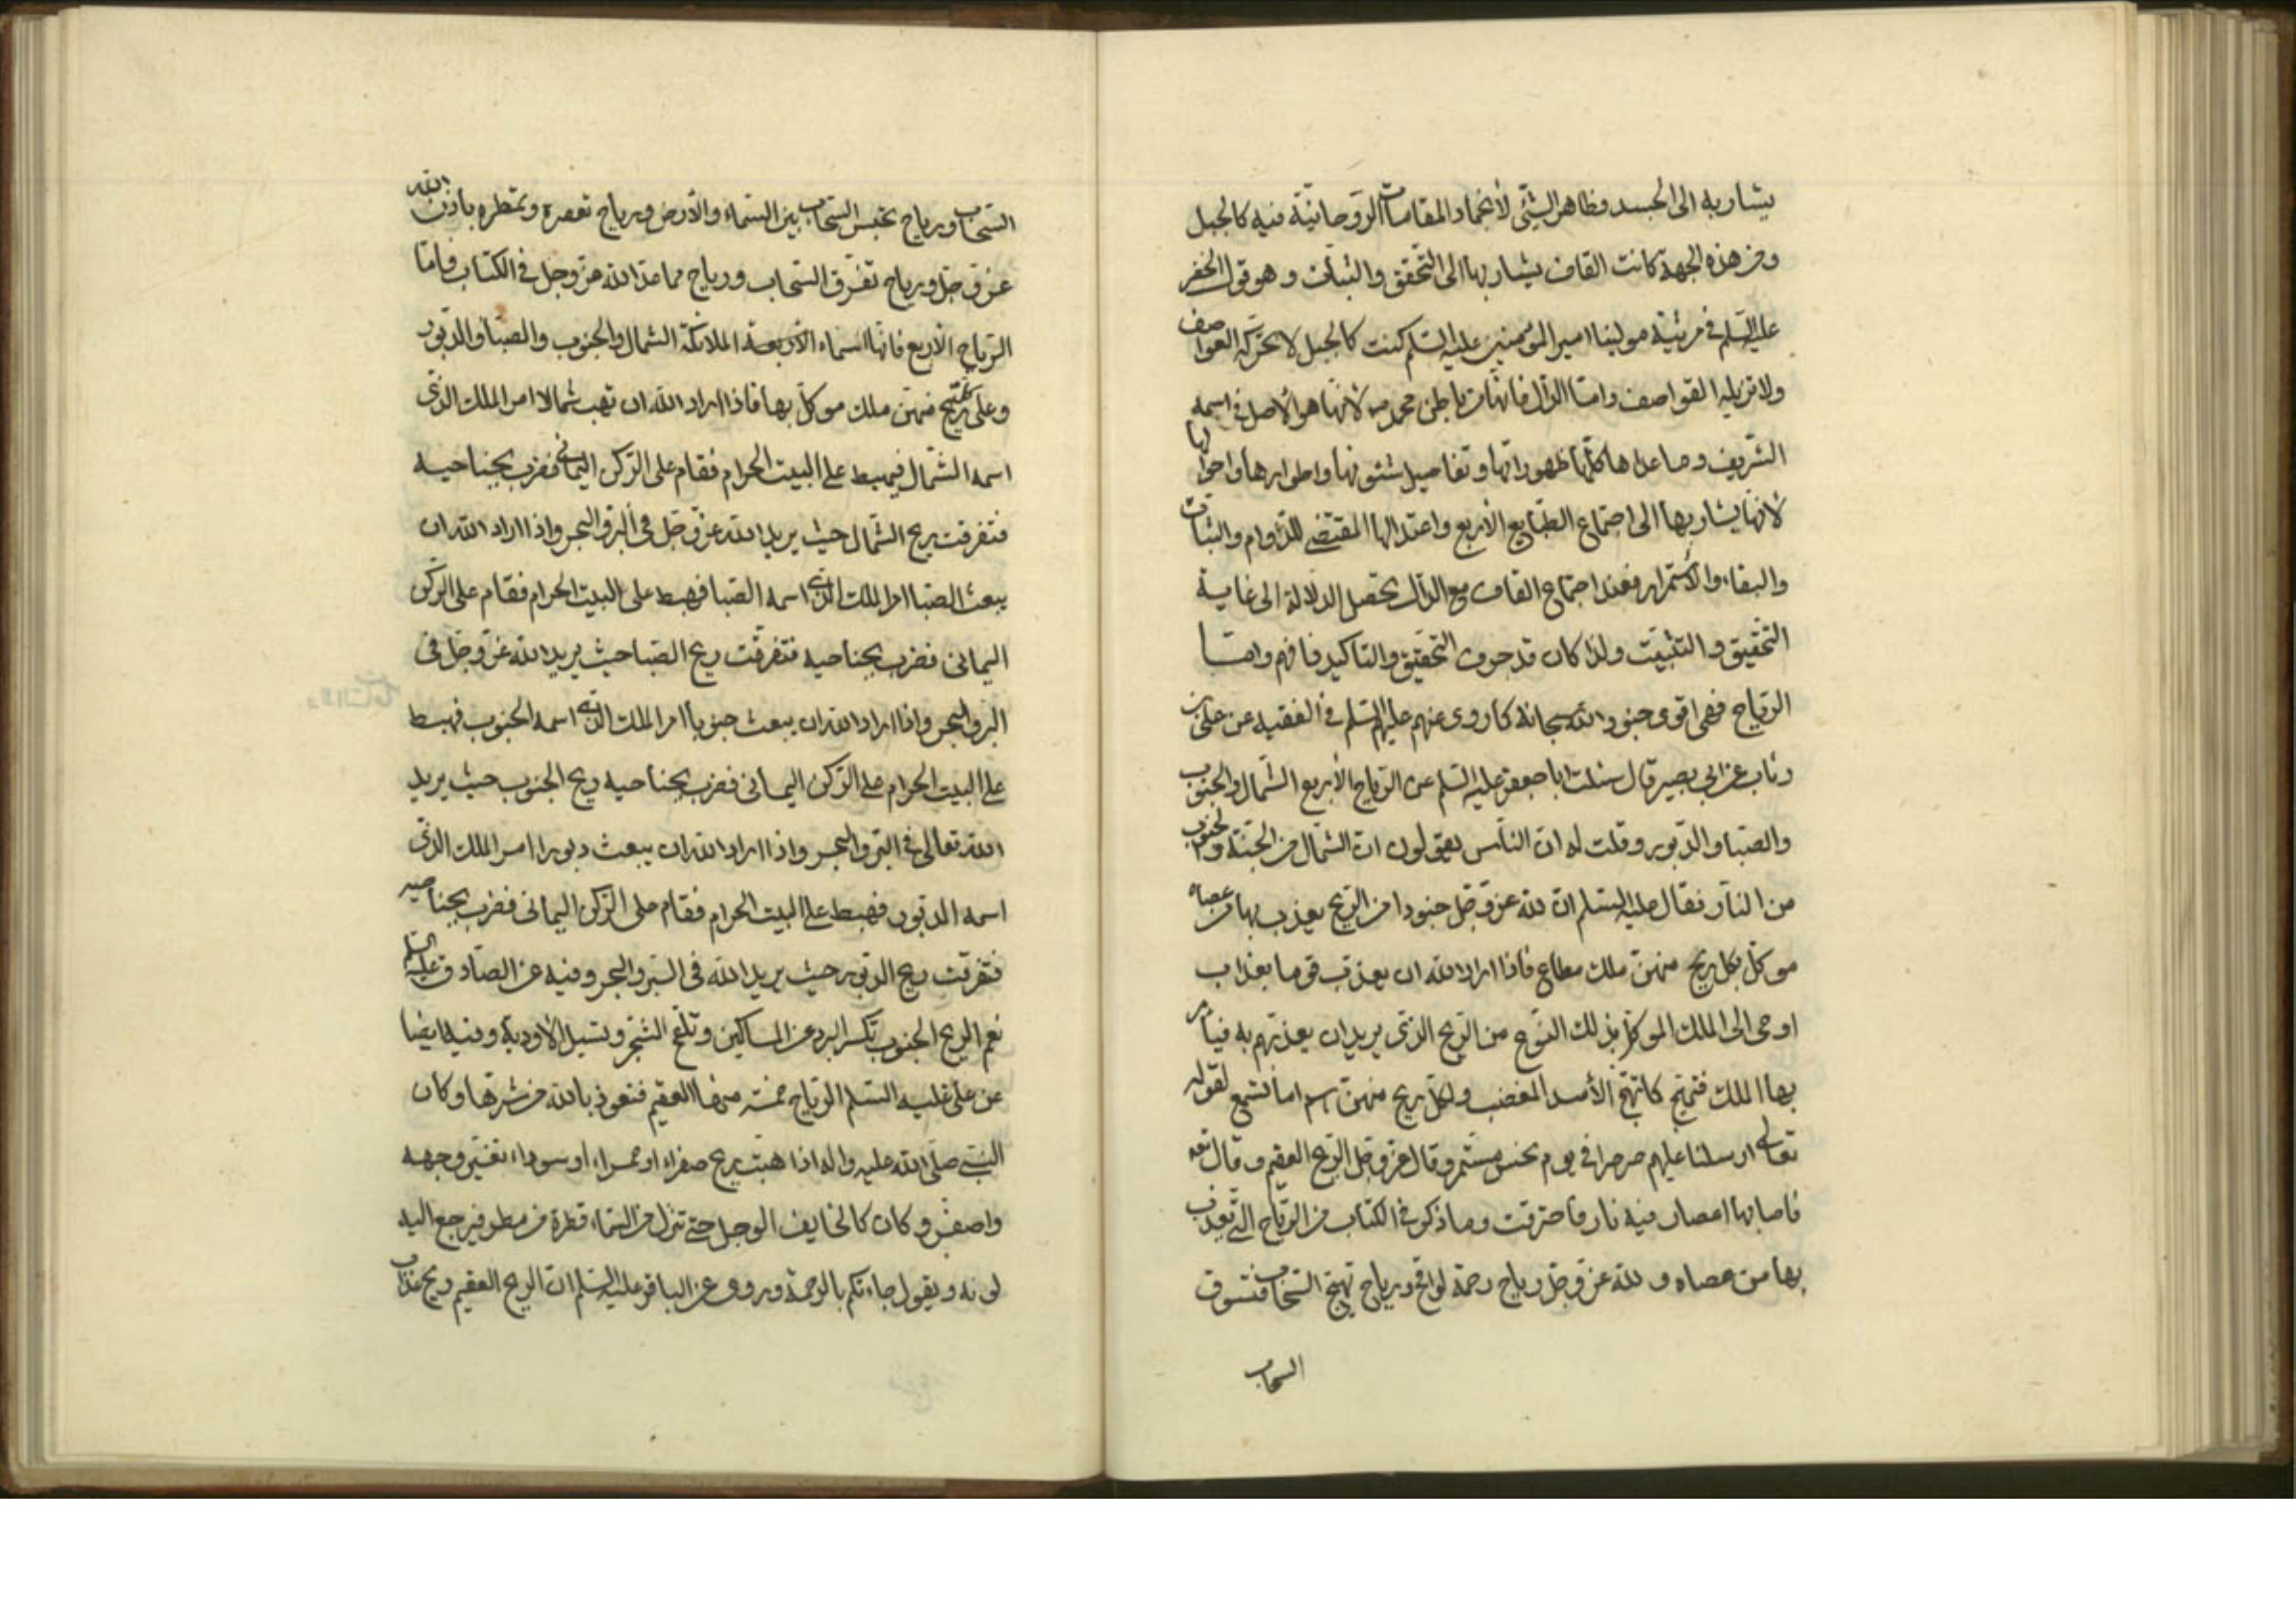 يشار به الى الجسد وظاهر الشئ لانجماد المقامات الروحانية فيه كالجبل
ومن هذه الجهة كانت القاف يشار بها الى التحقق والثبات وهو قول الخضر
عليه السلم في مرثية مولينا امير المؤمنين عليه السلم كنت كالجبل لا تحركه العواصف
ولا تزيله القواصف واما الدال فانها باطن محمد ص لانها هو الاصل في اسمه
الشريف وما عداها كلها ظهوراتها وتفاصيل شئونها واطوارها واحوالها
لانها يشار بها الى اجتماع الطبايع الاربع واعتدالها المقتضى للدوام والثبات
والبقاء والاستمرار فعند اجتماع القاف مع الدال تحصل الدلالة الى غاية
التحقيق والتثبيت ولذا كان قد حرف التحقيق والتاكيد فافهم واما
الرياح فهى اقوى جنود الله سبحانه كما روى عنهم عليهم السلم في الفقيه عن على بن
رئاب عن ابي بصير قال سئلت ابا جعفر عليه السلم عن الرياح الأربع الشمال والجنوب
والصبا والدبور وقلت له ان الناس يقولون ان الشمال من الجنة والجنوب
من النار فقال عليه السلم ان لله عز وجل جنودا من الريح يعذب بها من عصاه
موكل بكل ريح منهن ملك مطاع فاذا اراد الله ان يعذب قوما بعذاب
اوحى الى الملك الموكل بذلك النوع من الريح الذى يريد ان يعذبهم به فيامر
بها الملك فتهيج كما تهيج الأسد المغضب ولكل ريح منهن اسم اما تسمع لقوله
تعالى ارسلنا عليهم صرصرا في يوم نحس مستمر وقال عز وجل الريح العقيم وقال تعه
فاصابها اعصار فيه نار فاحترقت وما ذكر في الكتاب من الرياح التى يعذب
بها من عصاه و لله عز وجل رياح رحمة لواقح ورياح تهيج السحاب فتسوق
السحاب
السحاب ورياح تحبس السحاب بين السماء والأرض ورياح تعصره وتمطره باذن الله
عز وجل ورياح تفرق السحاب ورياح مما عد الله عز وجل في الكتاب فاما
الرياح الأربع فانها اسماء الأربعة الملائكة الشمال والجنوب والصبا والدبور
وعلى كل ريح منهن ملك موكل بها فاذا اراد الله ان تهب شمالا امر الملك الذى
اسمه الشمال فيهبط على البيت الحرام فقام على الركن اليمانى فضرب بجناحيه
فتفرقت ريح الشمال حيث يريد الله عز وجل في البر والبحر واذا اراد الله ان
يبعث الصبا امر الملك الذى اسمه الصبا فهبط على البيت الحرام فقام على الركن
اليمانى فضرب بجناحيه فتفرقت ريح الصبا حيث يريد الله عز وجل في
البر والبحر واذا اراد الله ان يبعث جنوبا امر الملك الذى اسمه الجنوب فهبط
على البيت الحرام على الركن اليمانى فضرب بجناحيه ريح الجنوب حيث يريد
الله تعالى في البر والبحر واذا اراد الله ان يبعث دبورا امر الملك الذى
اسمه الدبور فهبط على البيت الحرام فقام على الركن اليمانى فضرب بجناحيه
فتفرقت ريح الدبور حيث يريد الله في البر والبحر وفيه عن الصادق عليه السلم
نعم الريح الجنوب تكسر البرد عن المساكين وتلقح الشجر وتسيل الأودية وفيه ايضا
عن على عليه السلم الرياح خمسة منها العقيم فنعوذ بالله من شرها وكان
النبى صلى الله عليه واله اذا هبت ريح صفراء او حمراء او سوداء تغير وجهه
واصفر وكان كالخايف الوجل حتى تنزل من السماء قطرة من مطر فيرجع اليه
لونه ويقول جاءتكم بالرحمة وروى عن الباقر عليه السلم ان الريح العقيم ريح عذاب